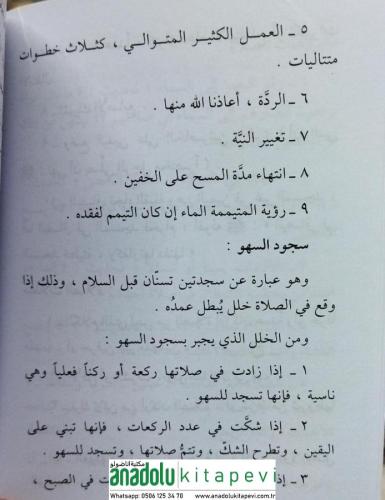 ٥ ـ العمل الكثير المتوالي ، كثلاث خطوات
متتاليات .
٦ ـ الردَّة ، أعاذنا الله منها .
٧ ـ تغيير النيَّة .
٨ ـ انتهاء مدَّة المسح على الخفين .
٩ ـ رؤية المتيممة الماء إن كان التيمم لفقده .
سجود السهو :
وهو عبارة عن سجدتين تسنّان قبل السلام ، وذلك إذا
وقع في الصلاة خلل يُبطل عمدُه .
ومن الخلل الذي يجبر بسجود السهو :
١ ـ إذا زادت في صلاتها ركعة أو ركناً فعلياً وهي
ناسية ، فإنها تسجد للسهو .
٢ ـ إذا شكَّت في عدد الركعات ، فإنها تبني على
اليقين ، وتطرح الشكّ ، وتتمُّ صلاتها ، وتسجد للسهو .
٣ ـ إذا في الصبح ،
مكتبة الأناضول
anadolukitapevi
Whatsapp: 0506 125 34 70 www.anadolukitapevi.com.tr